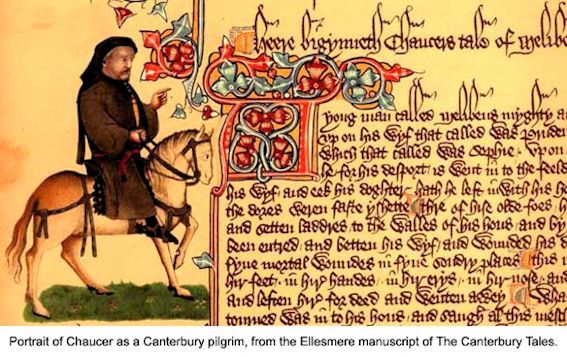 Heere bigynneth Chaucers tale of Melibe
yong man called Melibeus myghty a
vp on his wyf that called was Pruden
Which that called was Sophie. Vpon
he for his desport is went in to the feeld
his wyf and eek his doghter hath he left inwith his ho
the dores weren faste yshette / thre of hise olde foes h
and setten laddres to the walles of his hous and by
been entred / and betten his wyf and wounded his d
fyue mortal woundes in fyue sondry places / this i
hir feet / in hir handes / in hir erys / in hir nose / and
and leften hir for deed and wenten awey / Wha
torned was in to his hous / and saugh al this mes
Portrait of Chaucer as a Canterbury pilgrim, from the Ellesmere manuscript of The Canterbury Tales.